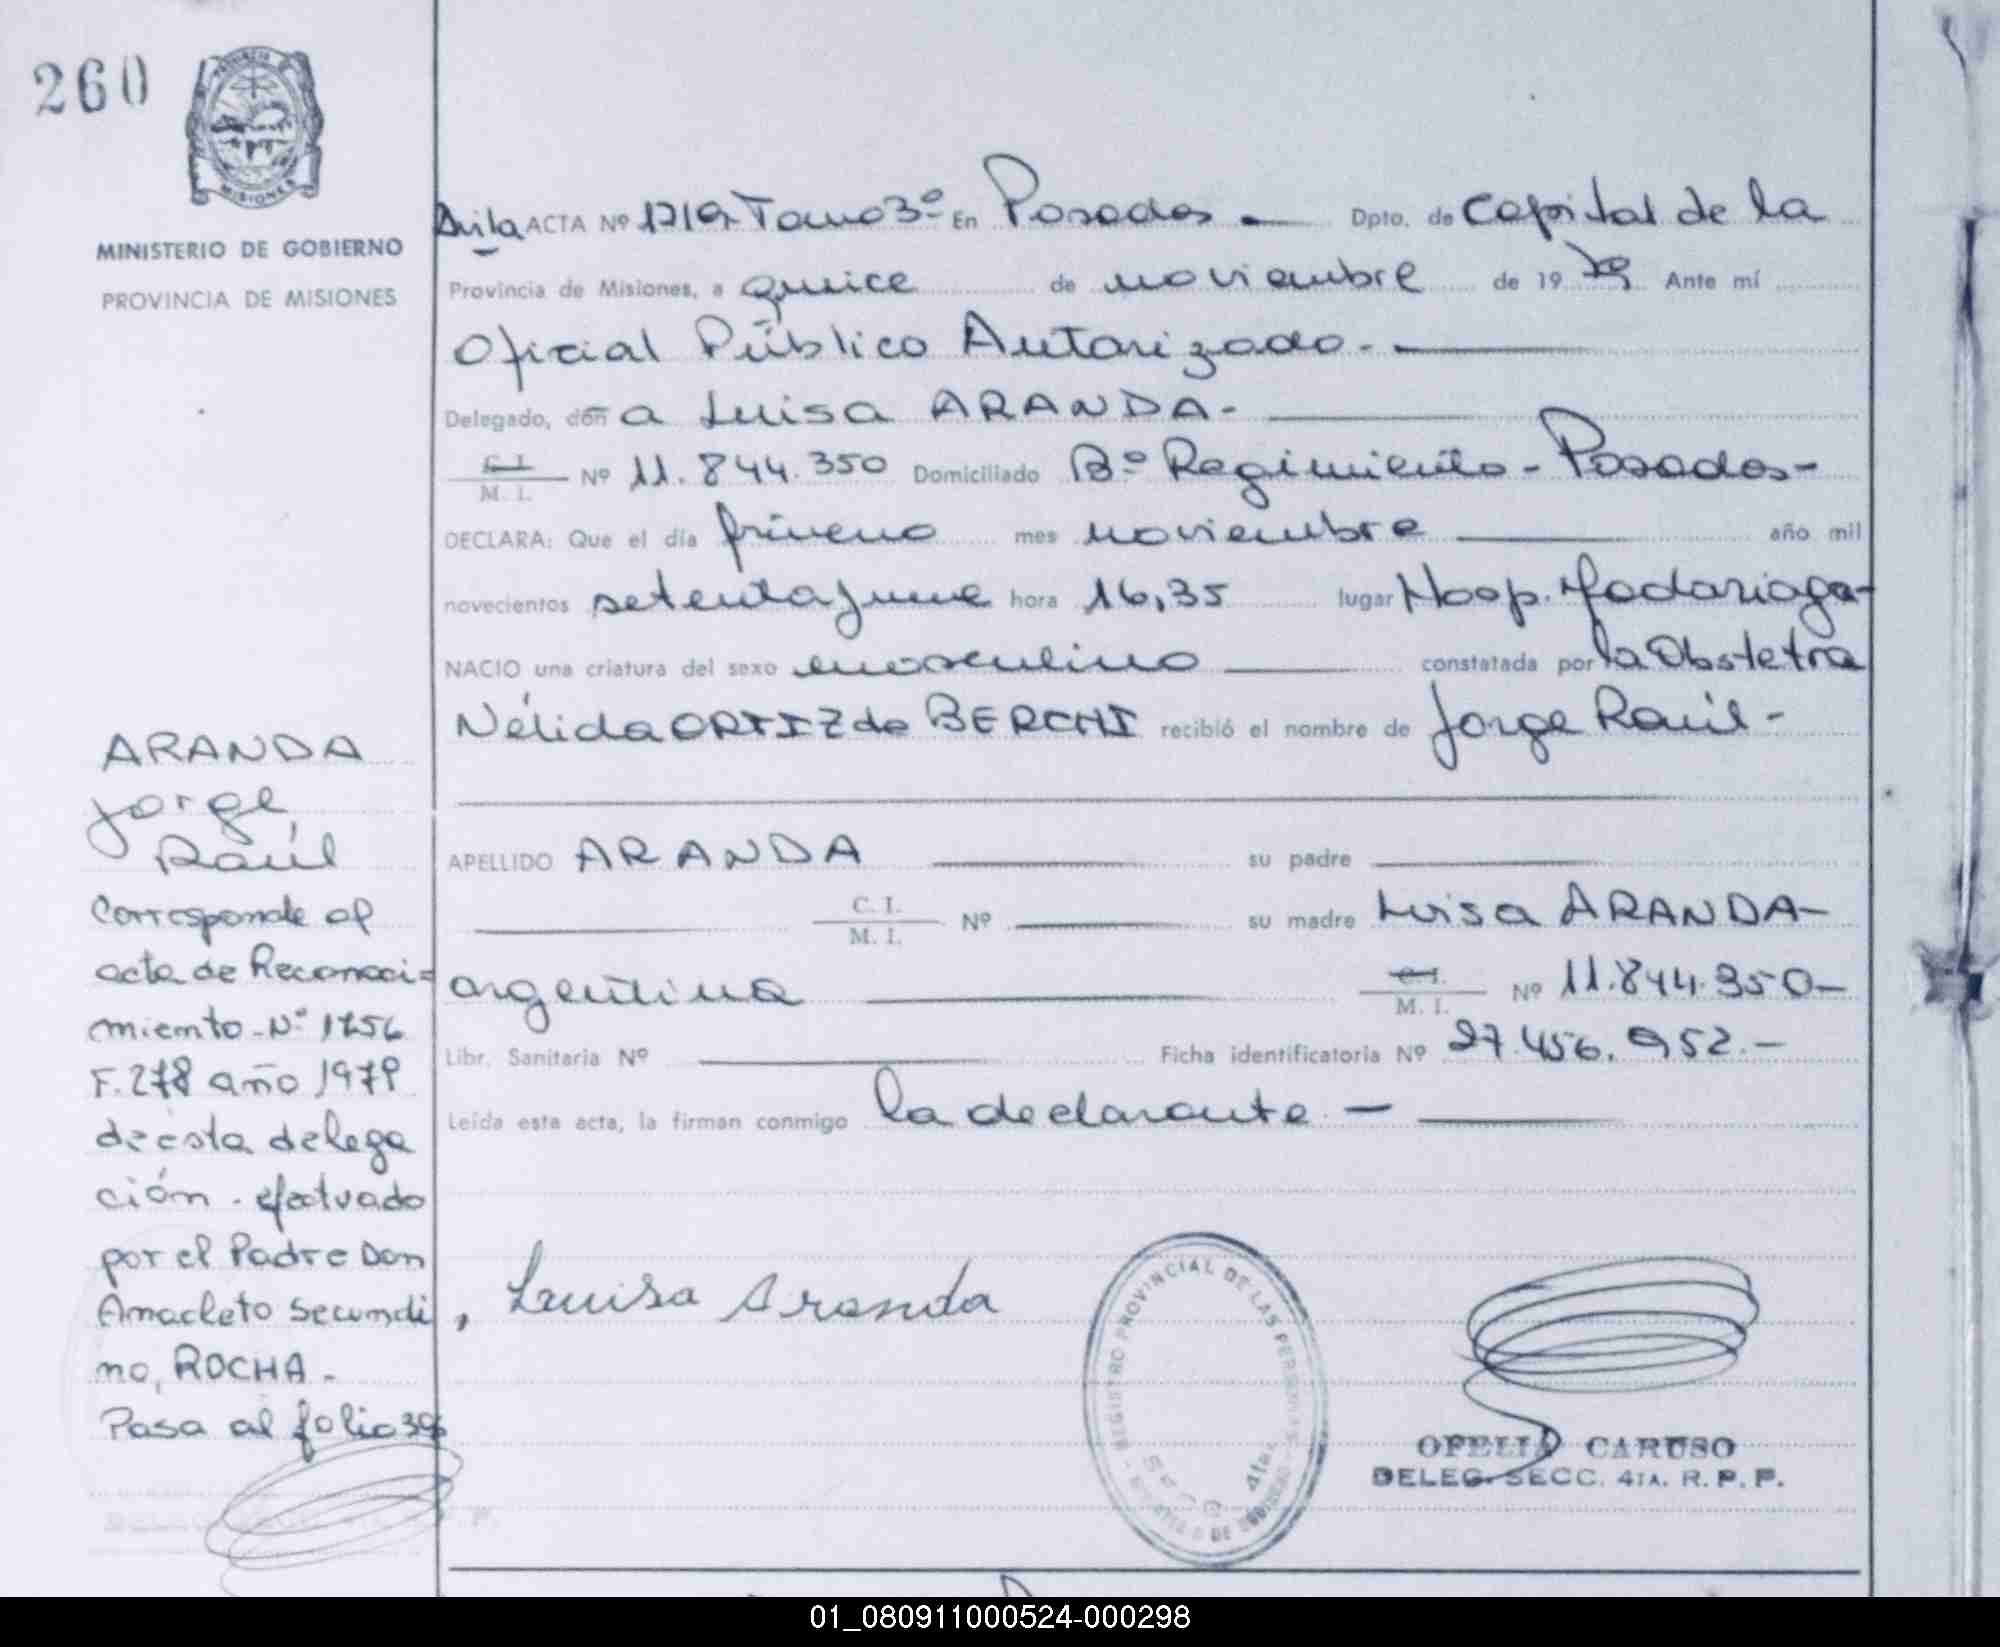 260
MINISTERIO DE GOBIERNO
PROVINCIA DE MISIONES
ACTA Nº 1719 Tomo 3º En Posadas Dpto. de Capital de la
Provincia de Misiones, a quice de noviembre de 19 79 Ante mí
Oficial Público Autorizado.-
Delegado, don a Luisa ARANDA-
C. I. M. I. Nº 11.844.350 Domiciliado Bº Regimiento - Posadas-
DECLARA: Que el día primero mes noviembre año mil
novecientos setenta y nueve hora 16,35 lugar Hosp. Madariaga-
NACIO una criatura del sexo masculino constatada por la Obstetra
Nélida ORTIZ de BERCHI recibió el nombre de Jorge Raúl-
APELLIDO ARANDA su padre
C. I. M. I. Nº su madre Luisa ARANDA-
argentina C. I. M. I. Nº 11.844.350-
Libr. Sanitaria Nº Ficha identificatoria Nº 27.456.952.-
Leída esta acta, la firman conmigo la declarante -
ARANDA
Jorge
Raúl
Corresponde al
acta de Reconoci=
miento-Nº 1756
F. 278 año 1979
de esta delega
ción. efectuado
por el Padre Don
Anacleto Secundi
no, ROCHA-
Pasa al folio
Luisa Aranda
REGISTRO PROVINCIAL DE LAS PERSONAS
4ta.
OFELIA CARUSO
DELEG. SECC. 4TA. R. P. P.
01_080911000524-000298